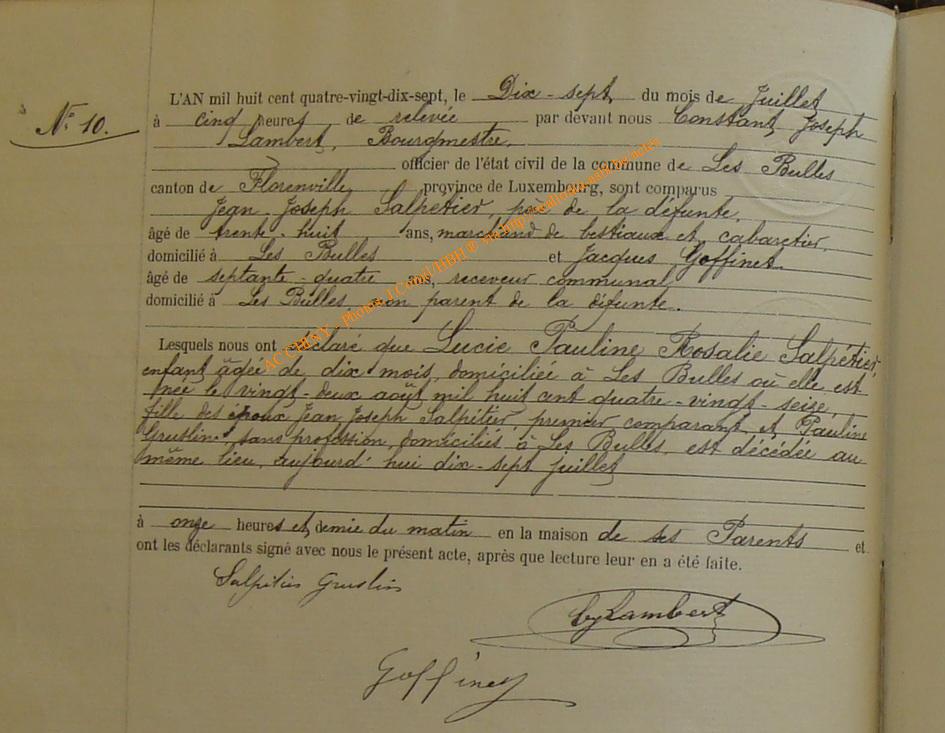 N° 10.
L'AN mil huit cent quatre-vingt-dix-sept, le Dix-sept du mois de Juillet
à cinq heures de relevée par devant nous Constant Joseph
Lambert, Bourgmestre,
officier de l'état civil de la commune de Les Bulles
canton de Florenville, province de Luxembourg, sont comparus
Jean Joseph Salpétier, père de la défunte,
âgé de trente-huit ans, marchand de bestiaux et cabaretier,
domicilié à Les Bulles et Jacques Goffinet
âgé de septante-quatre ans, receveur communal,
domicilié à Les Bulles, non parent de la défunte.
Lesquels nous ont déclaré que Lucie Pauline Rosalie Salpétier,
enfant âgée de dix mois, domiciliée à Les Bulles où elle est
née le vingt-deux août mil huit cent quatre-vingt-seize,
fille des époux Jean Joseph Salpétier, premier comparant et Pauline
Gruslin, sans profession, domiciliés à Les Bulles, est décédée au
même lieu, aujourd'hui dix-sept juillet
à onze heures et demie du matin en la maison de ses Parents et
ont les déclarants signé avec nous le présent acte, après que lecture leur en a été faite.
Salpétier Gruslin
Lambert
Goffinet
ACCHINY - Photos J.Cornil/HBH ®